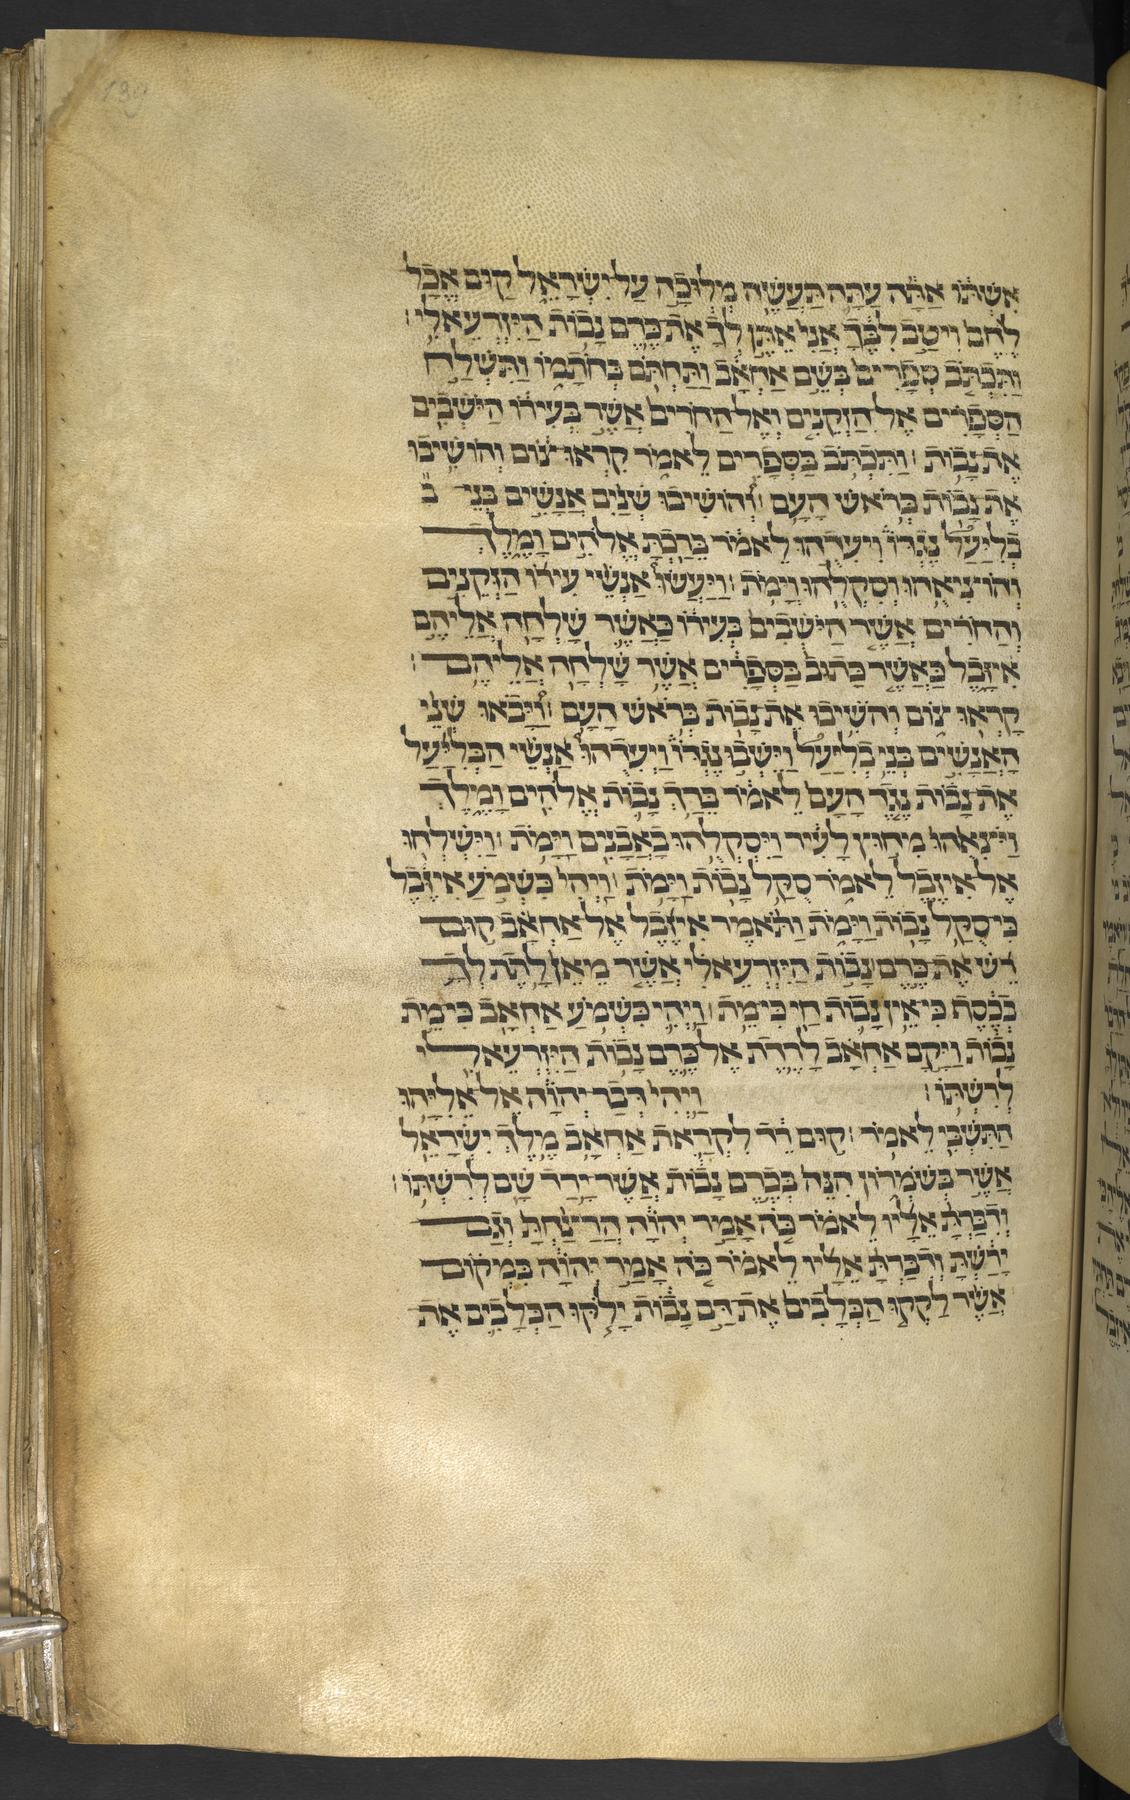 אשתו אתה עתה תעשה מלוכה על ישראל קום אכל
לחם ויטב לבך אני אתן לך את כרם נבות היזרעאלי׃
ותכתב ספרים בשם אחאב ותחתם בחתמו ותשלח
הספרים אל הזקנים ואל החרים אשר בעירו הישבים
את נבות׃ ותכתב בספרים לאמר קראו צום והושיבו
את נבות בראש העם׃ והושיבו שנים אנשים בני ב
בליעל נגדו ויעדהו לאמר ברכת אלהים ומלך
והוציאהו וסקלהו וימת׃ ויעשו אנשי עירו הזקנים
והחרים אשר הישבים בעירו כאשר שלחה אליהם
איזבל כאשר כתוב בספרים אשר שלחה אליהם׃
קראו צום והשיבו את נבות בראש העם׃ ויבאו שני
האנשים בני בליעל וישבו נגדו ויעדהו אנשי הבליעל
את נבות נגד העם לאמר ברך נבות אלהים ומלך
ויצאהו מחוץ לעיר ויסקלהו באבנים וימת׃ וישלחו
אל איזבל לאמר סקל נבות וימת׃ ויהי כשמע איזבל
כי סקל נבות וימת ותאמר איזבל אל אחאב קום
רש את כרם נבות היזרעאלי אשר מאן לתת לך
בכסף כי אין נבות חי כי מת׃ ויהי כשמע אחאב כי מת
נבות ויקם אחאב לרדת אל כרם נבות היזרעאלי
לרשתו׃ ויהי דבר יהוה אל אליהו
התשבי לאמר׃ קום רד לקראת אחאב מלך ישראל
אשר בשמרון הנה בכרם נבות אשר ירד שם לרשתו׃
ודברת אליו לאמר כה אמר יהוה הרצחת וגם
ירשת ודברת אליו לאמר כה אמר יהוה במקום
אשר לקקו הכלבים את דם נבות ילקו הכלבים את